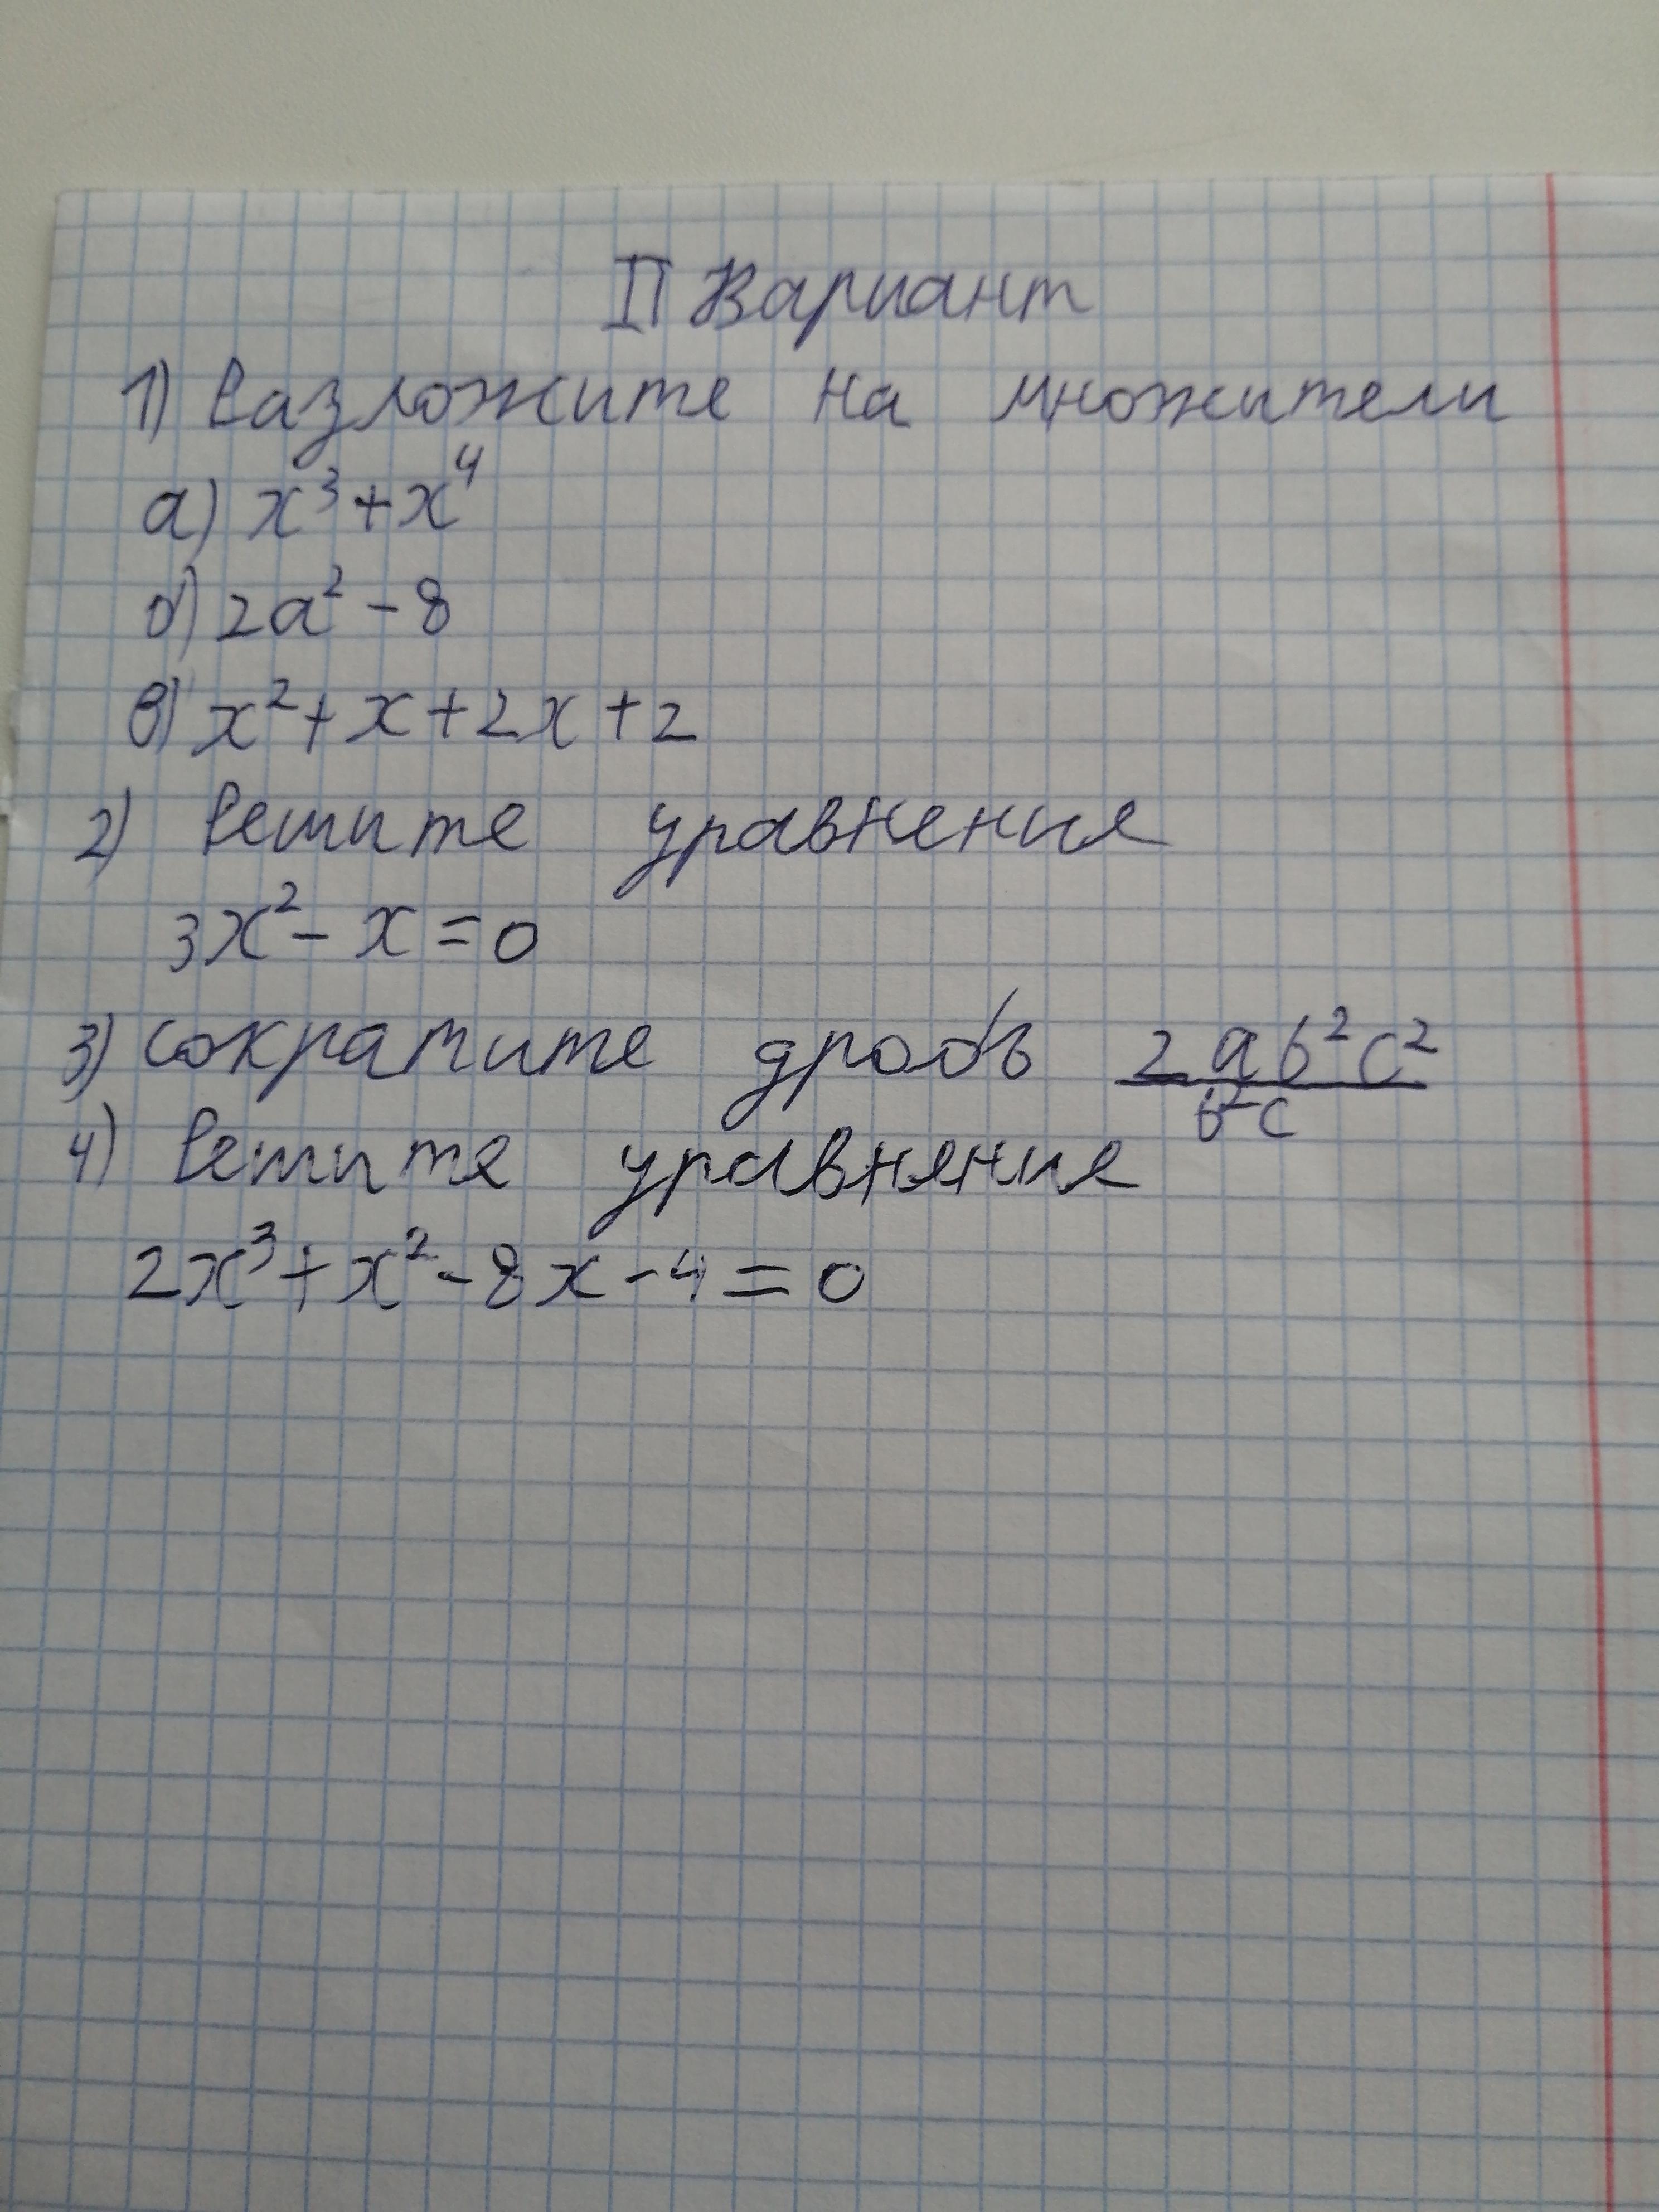 II Вариант
1) Разложите на множители
а) x³+x⁴
б) 2a²-8
в) x²+x+2x+2
2) Решите уравнение
3x²-x=0
3) сократите дробь 2ab²c²/b²c
4) Решите уравнение
2x³+x²-8x-4=0